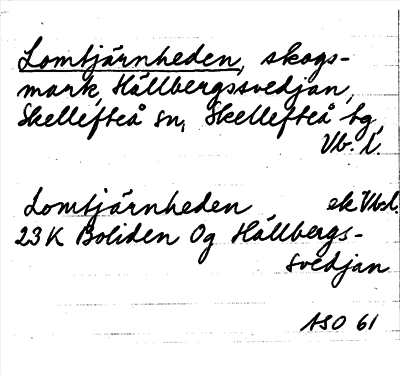 Lomtjärnheden, skogs-
mark, Hällbergssvedjan,
Skellefteå sn, Skellefteå tg,
Vb. l.
Lomtjärnheden ek Vbd.
23K Boliden Og Hällbergs-
svedjan
ASO 61